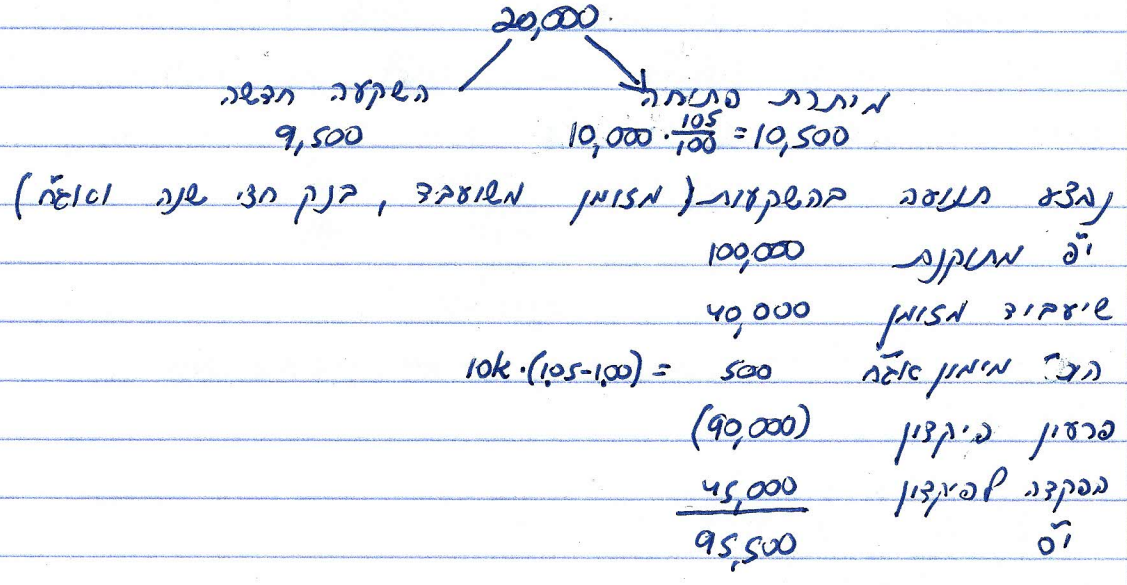 20,000
מיתרת פתיחה השקעה חדשה
10,000 · 105/100 = 10,500 9,500
נבצע תנועה בהשקעות (מזומן משועבד, בנק חצי שנה ואג"ח)
י"פ מתוקנת 100,000
שיעבוד מזומן 40,000
הוצ' מימון אג"ח 500 = 10k·(1.05-1.00)
פרעון פיקדון (90,000)
הפקדה לפיקדון 45,000
י"ס 95,500